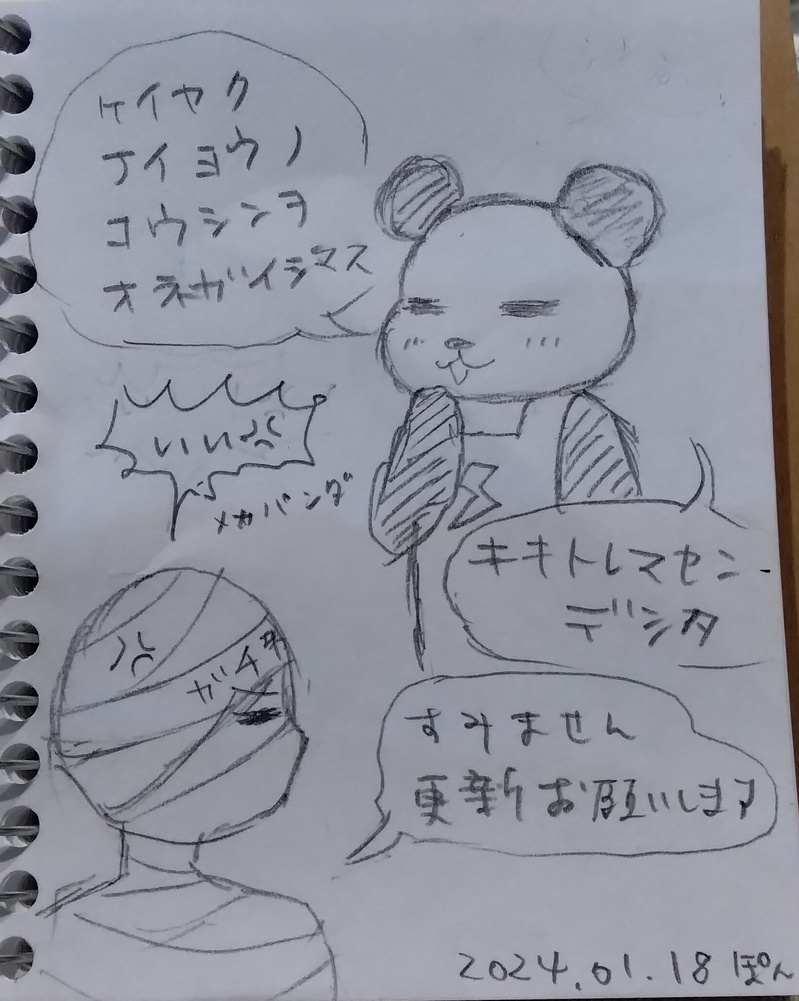 ケイヤク
ナイヨウノ
コウシンヲ
オネガイシマス
いい
メカパンダ
ガチギ
キキトレマセン
デシタ
すみません
更新お願いします
2024.01.18 ぽん